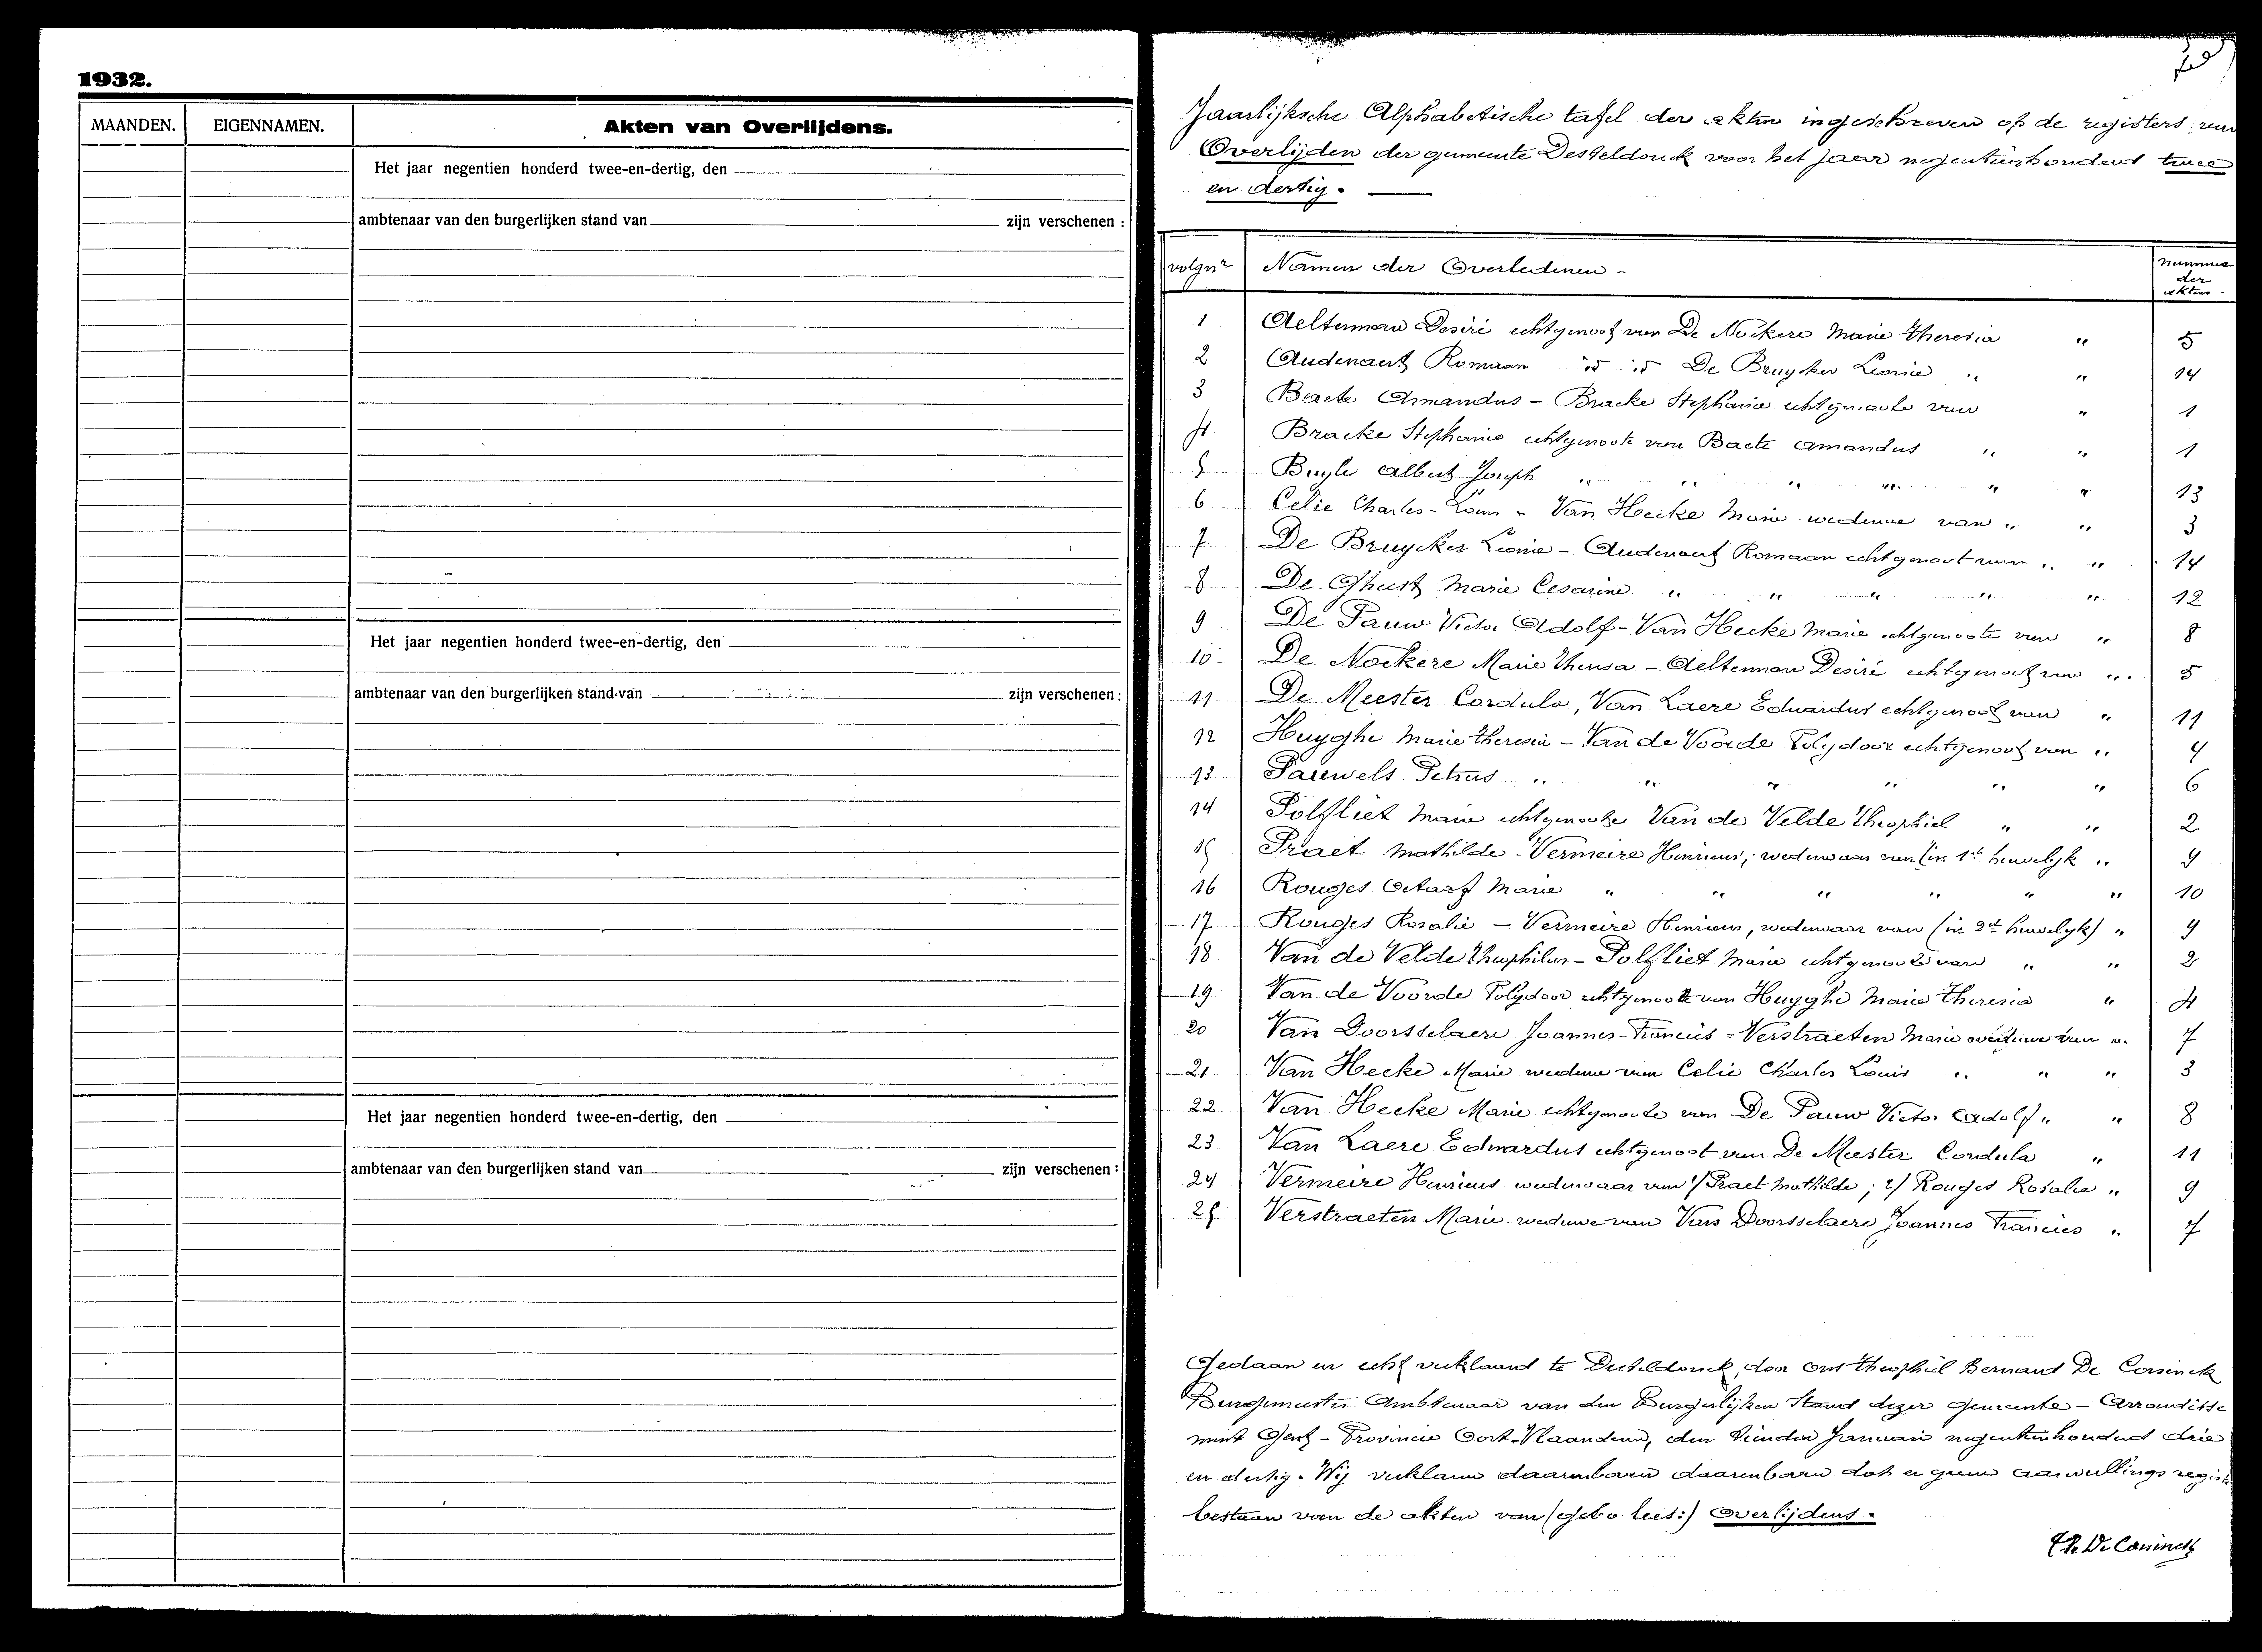 1932.
MAANDEN. EIGENNAMEN. Akten van Overlijdens.
Het jaar negentien honderd twee-en-dertig, den
ambtenaar van den burgerlijken stand van zijn verschenen :
Het jaar negentien honderd twee-en-dertig, den
ambtenaar van den burgerlijken stand van zijn verschenen :
Het jaar negentien honderd twee-en-dertig, den
ambtenaar van den burgerlijken stand van zijn verschenen :
Jaarlijksche Alphabetische tafel der akten ingeschreven op de registers van
Overlijden der gemeente Desteldonck voor het jaar negentienhonderd twee
en dertig.
volgnr Namen der Overledenen - nummer der akten.
1 Aelterman Desiré echtgenoot van De Nockere Marie Theresia " 5
2 Audenaert Romaan id id De Bruycker Leonie " " 14
3 Baete Amandus - Bracke Stephanie echtgenoote van " 1
4 Bracke Stephanie echtgenoote van Baete Amandus " " 1
5 Buyle Albert Joseph " " " " " " 13
6 Celie Charles-Louis - Van Hecke Marie weduwe van " " 3
7 De Bruycker Leonie - Audenaert Romaan echtgenoot van " " 14
8 De Ghust Marie Cesarine " " " " " 12
9 De Pauw Victor Adolf - Van Hecke Marie echtgenoote van " 8
10 De Nockere Marie Theresa - Aelterman Desiré echtgenoot van " 5
11 De Meester Cordula, Van Laere Eduardus echtgenoot van " 11
12 Huyghe Marie Theresia - Van de Voorde Polydoor echtgenoot van " 4
13 Pauwels Petrus " " " " " " 6
14 Polfliet Marie echtgenoote Van de Velde Theophiel " " 2
15 Praet Mathilde - Vermeire Henricus, weduwaar van (in 1ste huwelyk " 9
16 Rouges Octaaf Marie " " " " " " 10
17 Rouges Rosalie - Vermeire Henricus, weduwaar van (in 2de huwelyk) " 9
18 Van de Velde Theophilus - Polfliet Marie echtgenoote van " " 2
19 Van de Voorde Polydoor echtgenoot van Huyghe Marie Theresia " 4
20 Van Doorsselaere Joannes-Francies - Verstraeten Marie weduwe van " 7
21 Van Hecke Marie weduwe van Celie Charles Louis " " " 3
22 Van Hecke Marie echtgenoote van De Pauw Victor Adolf " " 8
23 Van Laere Eduardus echtgenoot van De Meester Cordula " 11
24 Vermeire Henricus weduwaar van 1/ Praet Mathilde ; 2/ Rouges Rosalie " 9
25 Verstraeten Marie weduwe van Van Doorsselaere Joannes Francies " 7
Gedaan en echt verklaard te Desteldonck, door ons Theophiel Bernard De Coninck
Burgemeester Ambtenaar van den Burgerlijken Stand dezer gemeente - Arrondisse
ment Gent - Provincie Oost-Vlaanderen, den Januari negentienhonderd drie
en dertig. Wij verklaren daarenboven daarenboven dat er geene aanvullings regist
bestaan van de akten van (lees:) Overlijdens.
Th. De Coninck